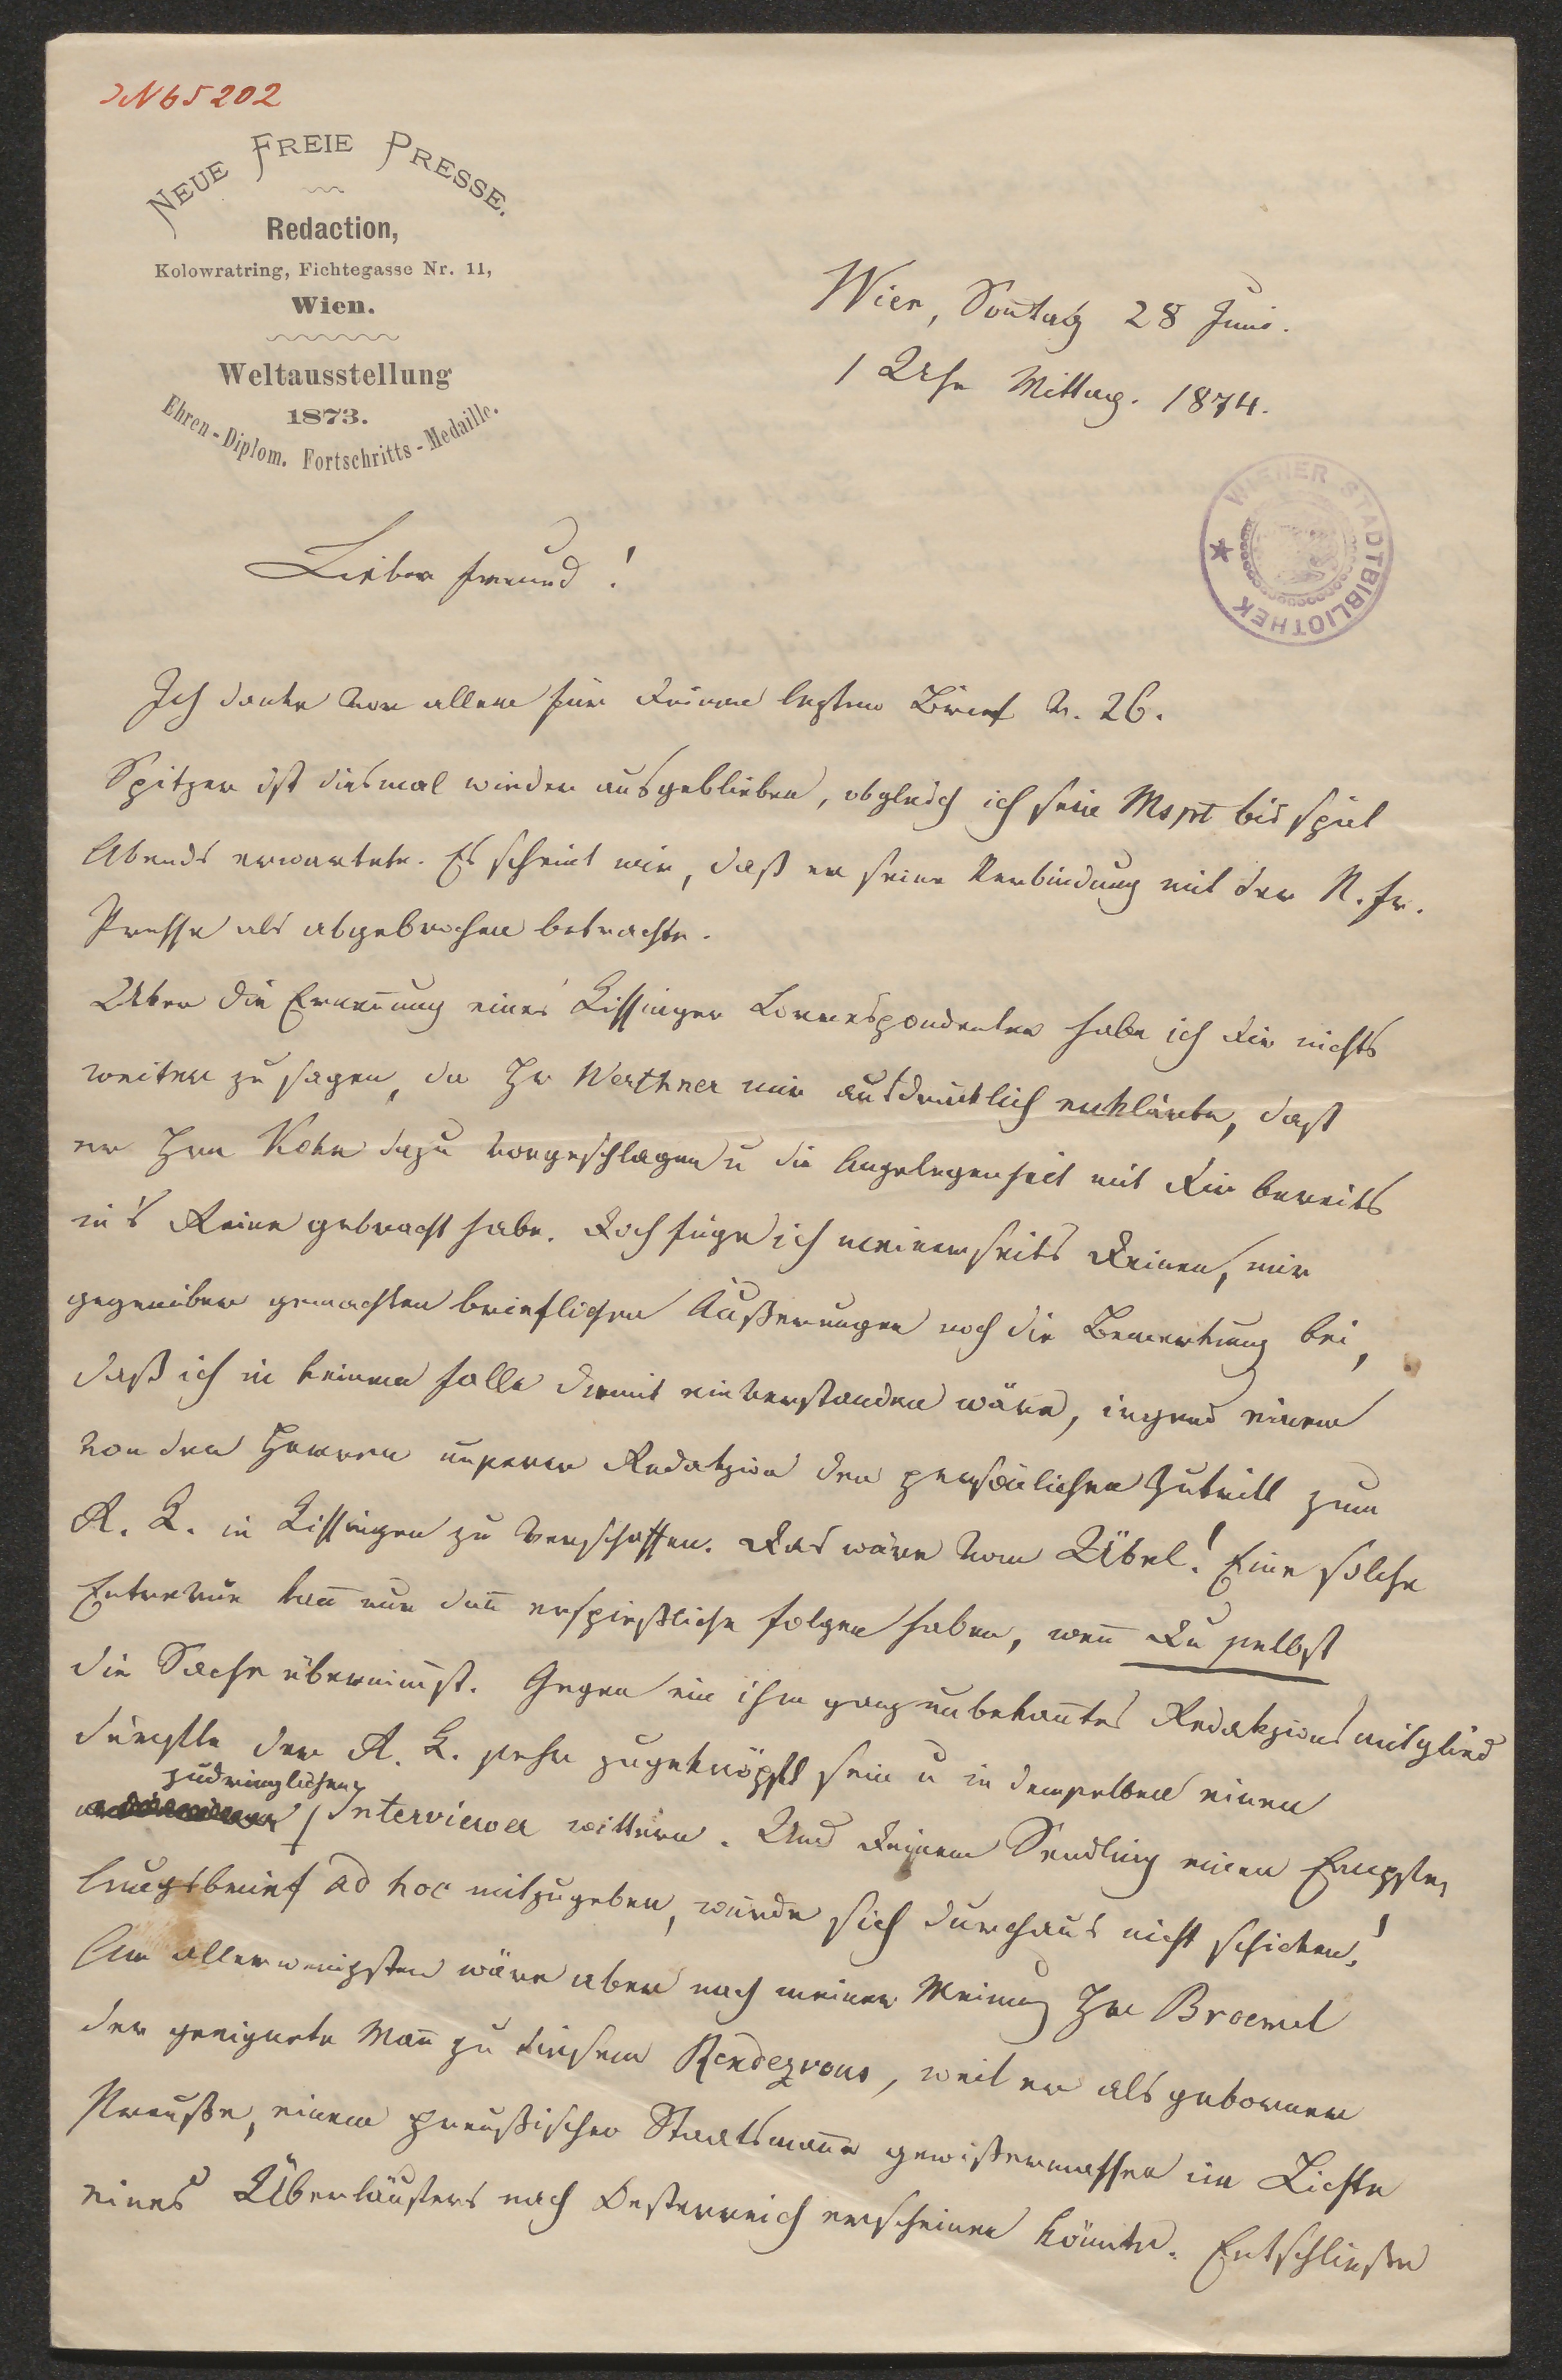 JN 65202
NEUE FREIE PRESSE.
Redaction,
Kolowratring, Fichtegasse Nr. 11,
Wien.
Weltausstellung
1873.
Ehren-Diplom. Fortschritts-Medaille.
Wien, Soñtag 28 Juni.
1 Uhr Mittag. 1874.
WIENER STADTBIBLIOTHEK
Lieber Freund!
Ich danke vor allem für Deinen letzten Brief v. 26.
Spitzer ist diesmal wieder ausgeblieben, obgleich ich sein Mspt bis spät
Abends erwartete. Es scheint mir, daß er seine Verbindung mit der N. Fr.
Presse als abgebrochen betrachte.
Über die Erneñung eines Kissinger Correspondenten habe ich Dir nichts
weiter zu sagen, da Hr Werthner mir ausdrücklich erklärte, daß
er Hrn Kohn dazu vorgeschlagen u die Angelegenheit mit Dir bereits
in's Reine gebracht habe. Doch füge ich meinerseits Deinen, mir
gegenüber gemachten brieflichen Äußerungen noch die Bemerkung bei,
daß ich in keinem Falle damit einverstanden wäre, irgend einem
von den Herren unserer Redakzion den persönlichen Zutritt zum
R. K. in Kissingen zu verschaffen. Das wäre vom Übel! Eine solche
Entrevue kañ nur dañ ersprießliche Folgen haben, weñ Du selbst
die Sache übernim̄st. Gegen ein ihm ganz unbekañtes Redakzionsmitglied
dürfte der R. K. sehr zugeknöpft sein u in demselben einen
zudringlichen
Interviewer wittern. Und Deinem Sendling einen Empfeh-
lungsbrief ad hoc mitzugeben, würde sich durchaus nicht schicken!
Am allerwenigsten wäre aber nach meiner Meinung Hr Broemel
der geeignete Mañ zu diesem Rendezvous, weil er als geborner
Preuße, einem preußischen Staatsmañe gewißermassen im Lichte
eines Überläufers nach Oesterreich erscheinen köñte. Entschließe